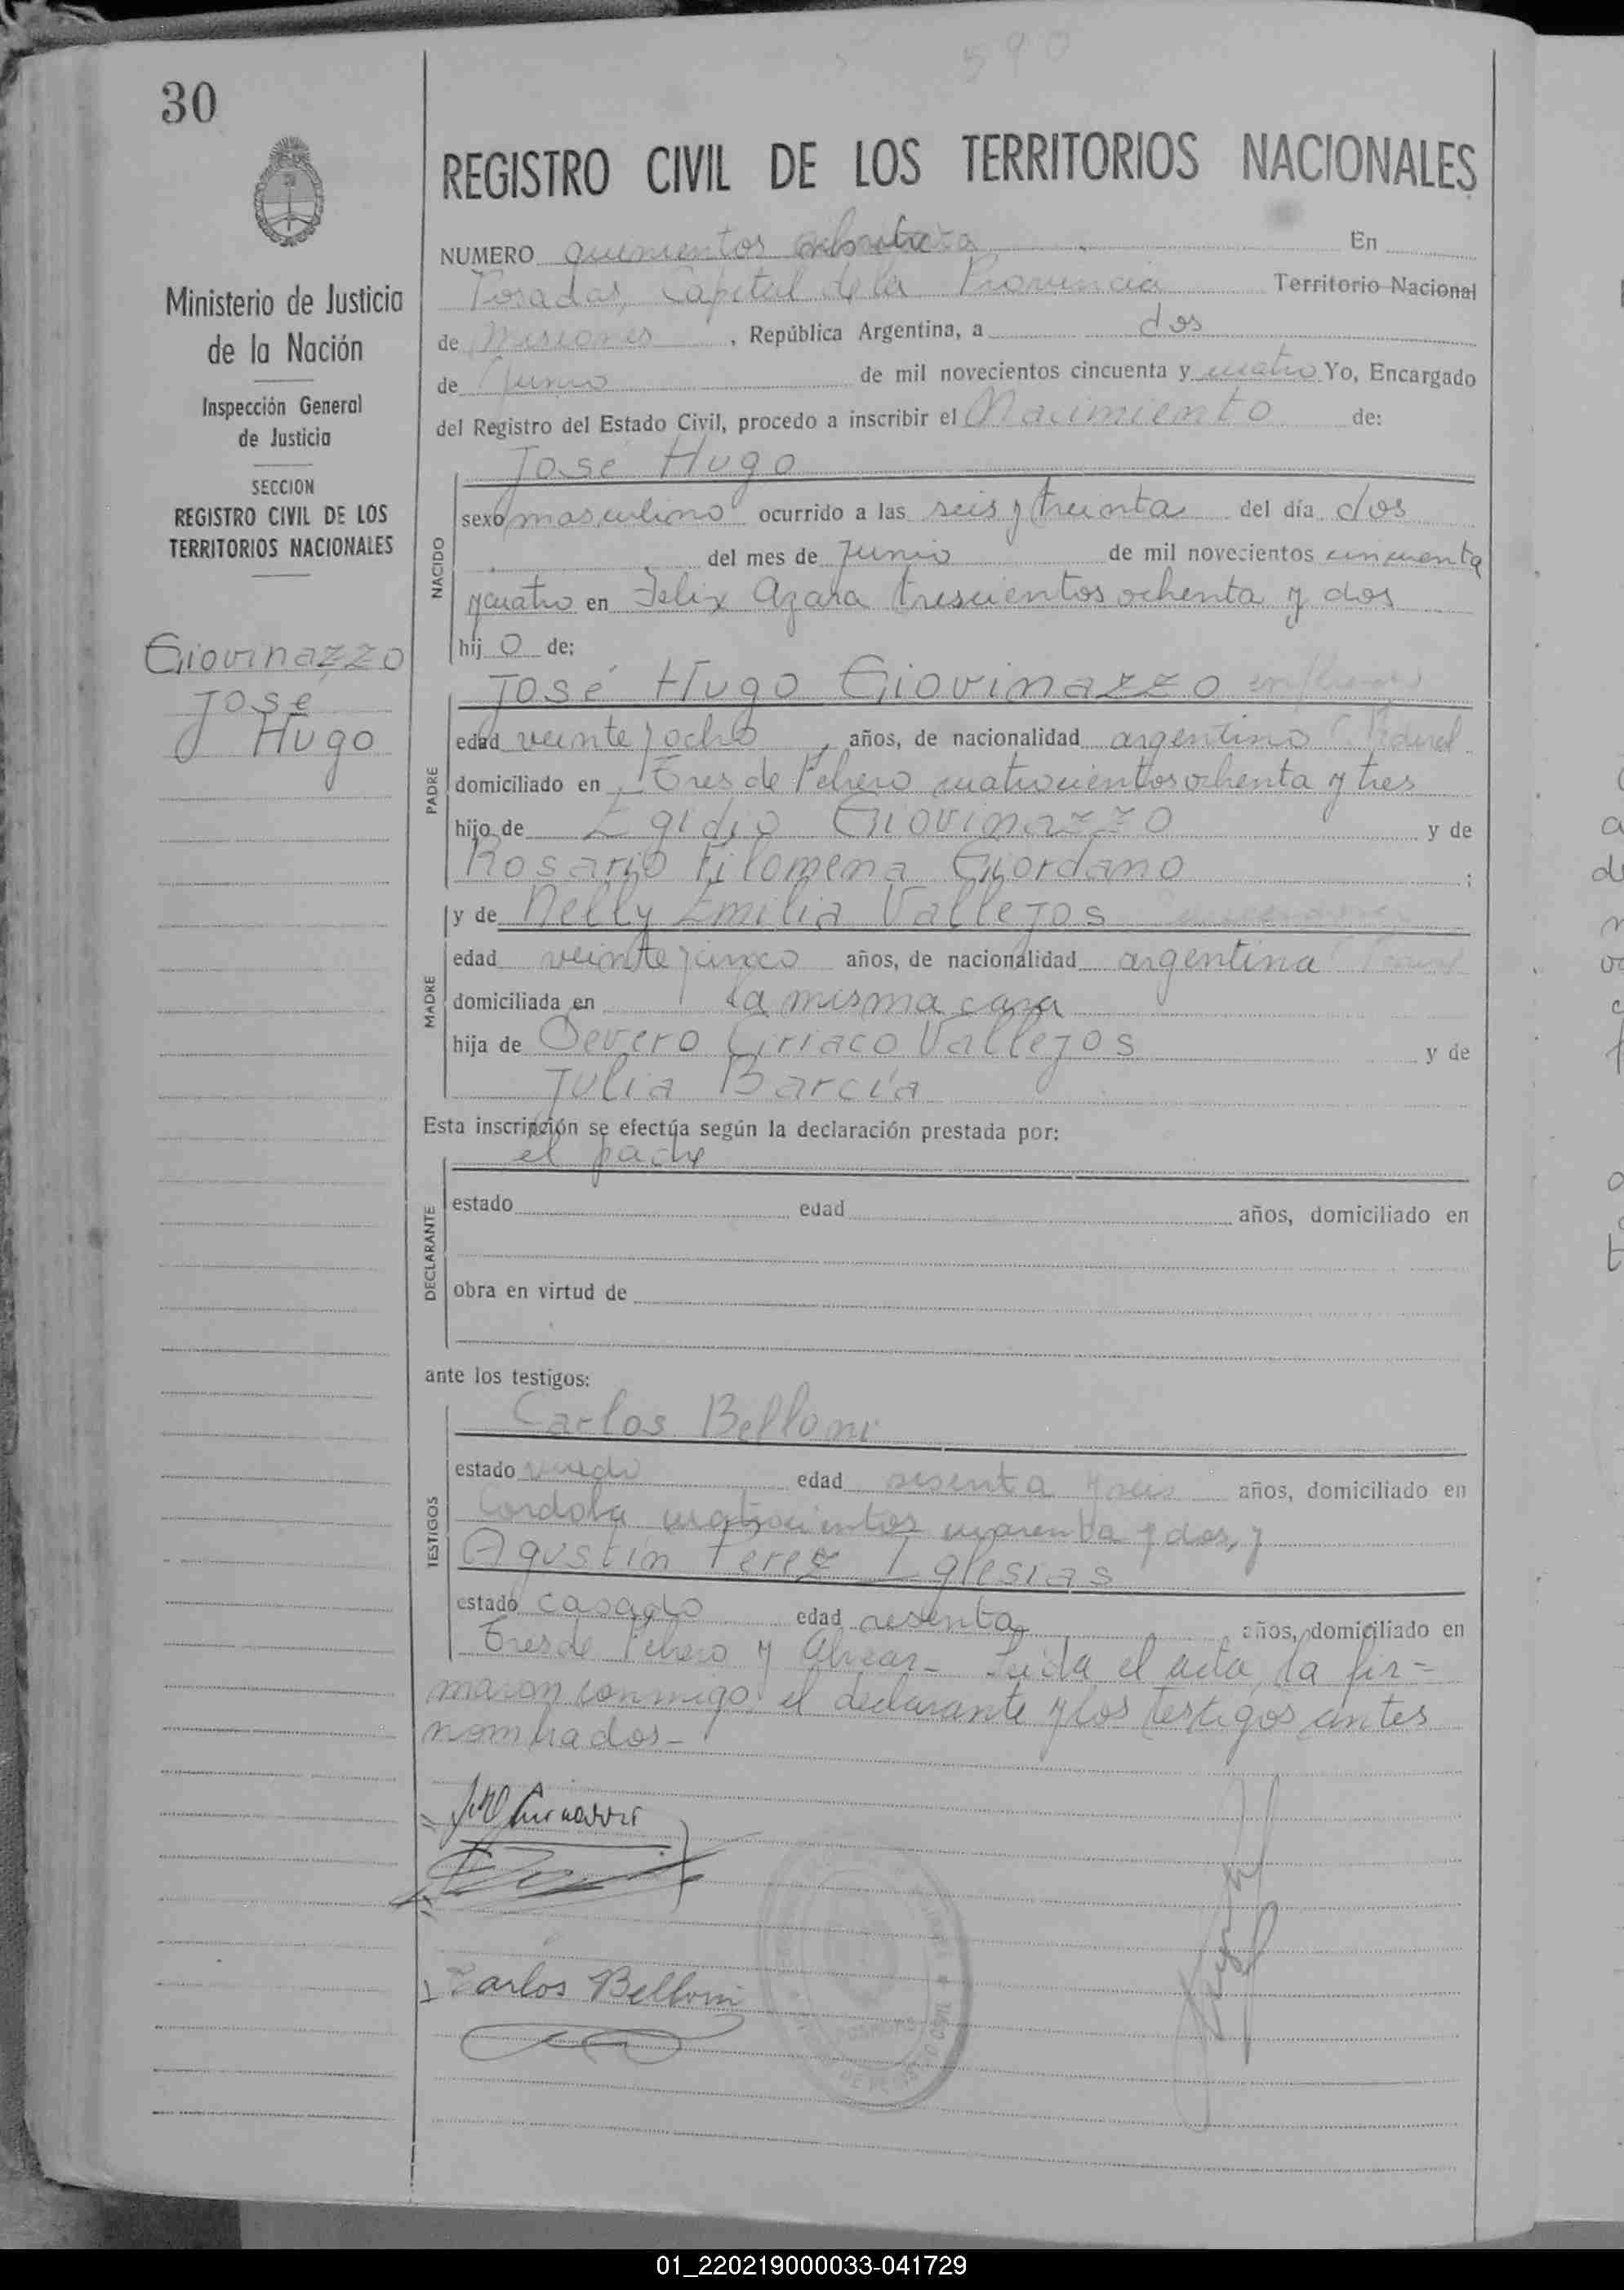 590
30
REGISTRO CIVIL DE LOS TERRITORIOS NACIONALES
Ministerio de Justicia
de la Nación
Inspección General
de Justicia
SECCION
REGISTRO CIVIL DE LOS
TERRITORIOS NACIONALES
Giovinazzo
José
Hugo
NUMERO quinientos En
Posadas, Capital de la Provincia Territorio Nacional
de Misiones, República Argentina, a dos
de Junio de mil novecientos cincuenta y cuatro Yo, Encargado
del Registro del Estado Civil, procedo a inscribir el Nacimiento de:
José Hugo
NACIDO
sexo masculino ocurrido a las seis y treinta del día dos
del mes de Junio de mil novecientos cincuenta
y cuatro en Felix Azara trescientos ochenta y dos
hij o de:
José Hugo Giovinazzo
PADRE
edad veinte y ocho, años, de nacionalidad argentino
domiciliado en Tres de Febrero cuatrocientos ochenta y tres
hijo de Egidio Giovinazzo y de
Rosario Filomena Giordano;
y de Nelly Emilia Vallejos
MADRE
edad veinte y cinco años, de nacionalidad argentina
domiciliada en la misma casa
hija de Severo Ciriaco Vallejos y de
Julia Barcia
Esta inscripción se efectúa según la declaración prestada por:
el padre
DECLARANTE
estado edad años, domiciliado en
obra en virtud de
ante los testigos:
Carlos Belloni
TESTIGOS
estado viudo edad sesenta y seis años, domiciliado en
Cordoba cuatrocientos cuarenta y dos, y
Agustin Perez Iglesias
estado casado edad sesenta años, domiciliado en
Tres de Febrero y Alvear- Leida el acta, la fir-
maron conmigo el declarante y los testigos antes
nombrados-
Carlos Belloni
POSADAS
01_220219000033-041729